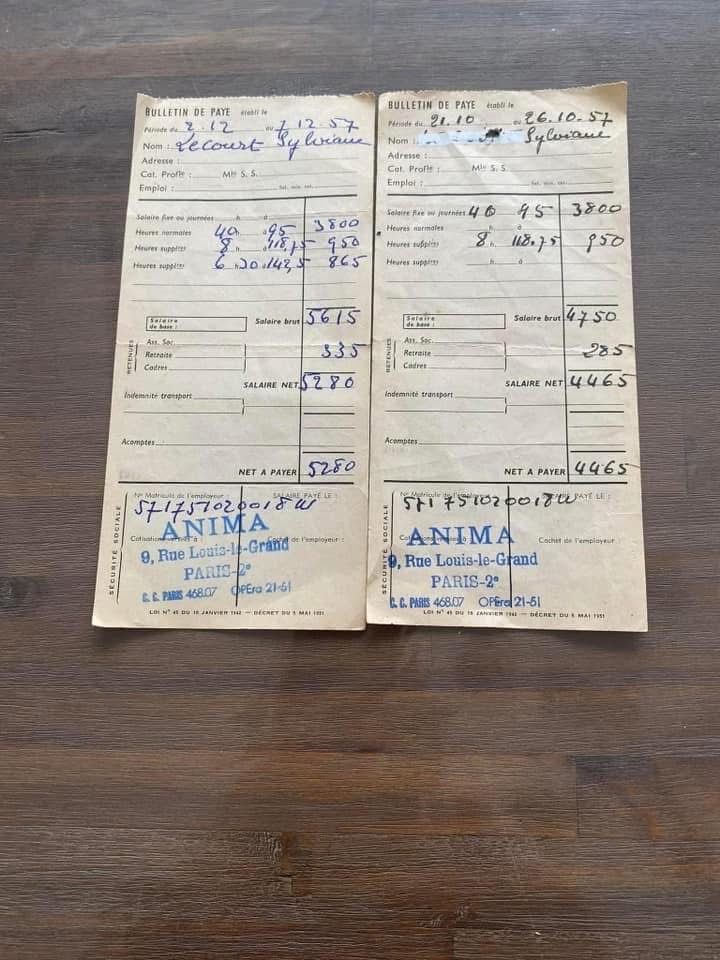 BULLETIN DE PAYE établi le
Période du 2.12 au 7.12.57
Nom : Lecourt Sylviane
Adresse :
Cat. Profle : Mle S. S.
Emploi : Sal. min. cat.
Salaire fixe ou journées h. à
Heures normales 40 h. à 95 3800
Heures supplres 8 h. à 118,75 950
Heures supplres 6 h 20 à 142,5 865
Salaire de base : Salaire brut 5615
RETENUES
Ass. Soc.
Retraite 335
Cadres
SALAIRE NET 5280
Indemnité transport
Acomptes
NET A PAYER 5280
SÉCURITÉ SOCIALE
No Matricule de l'employeur SALAIRE PAYÉ LE :
571751020018W
Cotisations versées à : Cachet de l'employeur :
ANIMA
9, Rue Louis-le-Grand
PARIS-2e
C. C. PARIS 468.07 OPÉra 21-51
LOI No 45 DU 18 JANVIER 1942 — DÉCRET DU 5 MAI 1951
BULLETIN DE PAYE établi le
Période du 21.10 au 26.10.57
Nom : Sylviane
Adresse :
Cat. Profle : Mle S. S.
Emploi : Sal. min. cat.
Salaire fixe ou journées 40 95 3800
Heures normales h. à
Heures supplres 8 h. 118.75 950
Heures supplres h. à
Salaire de base : Salaire brut 4750
RETENUES
Ass. Soc.
Retraite 285
Cadres
SALAIRE NET 4465
Indemnité transport
Acomptes
NET A PAYER 4465
SÉCURITÉ SOCIALE
No Matricule de l'employeur SALAIRE PAYÉ LE :
571751020018W
Cotisations versées à : Cachet de l'employeur :
ANIMA
9, Rue Louis-le-Grand
PARIS-2e
C. C. PARIS 468.07 OPÉra 21-51
LOI No 45 DU 18 JANVIER 1942 — DÉCRET DU 5 MAI 1951